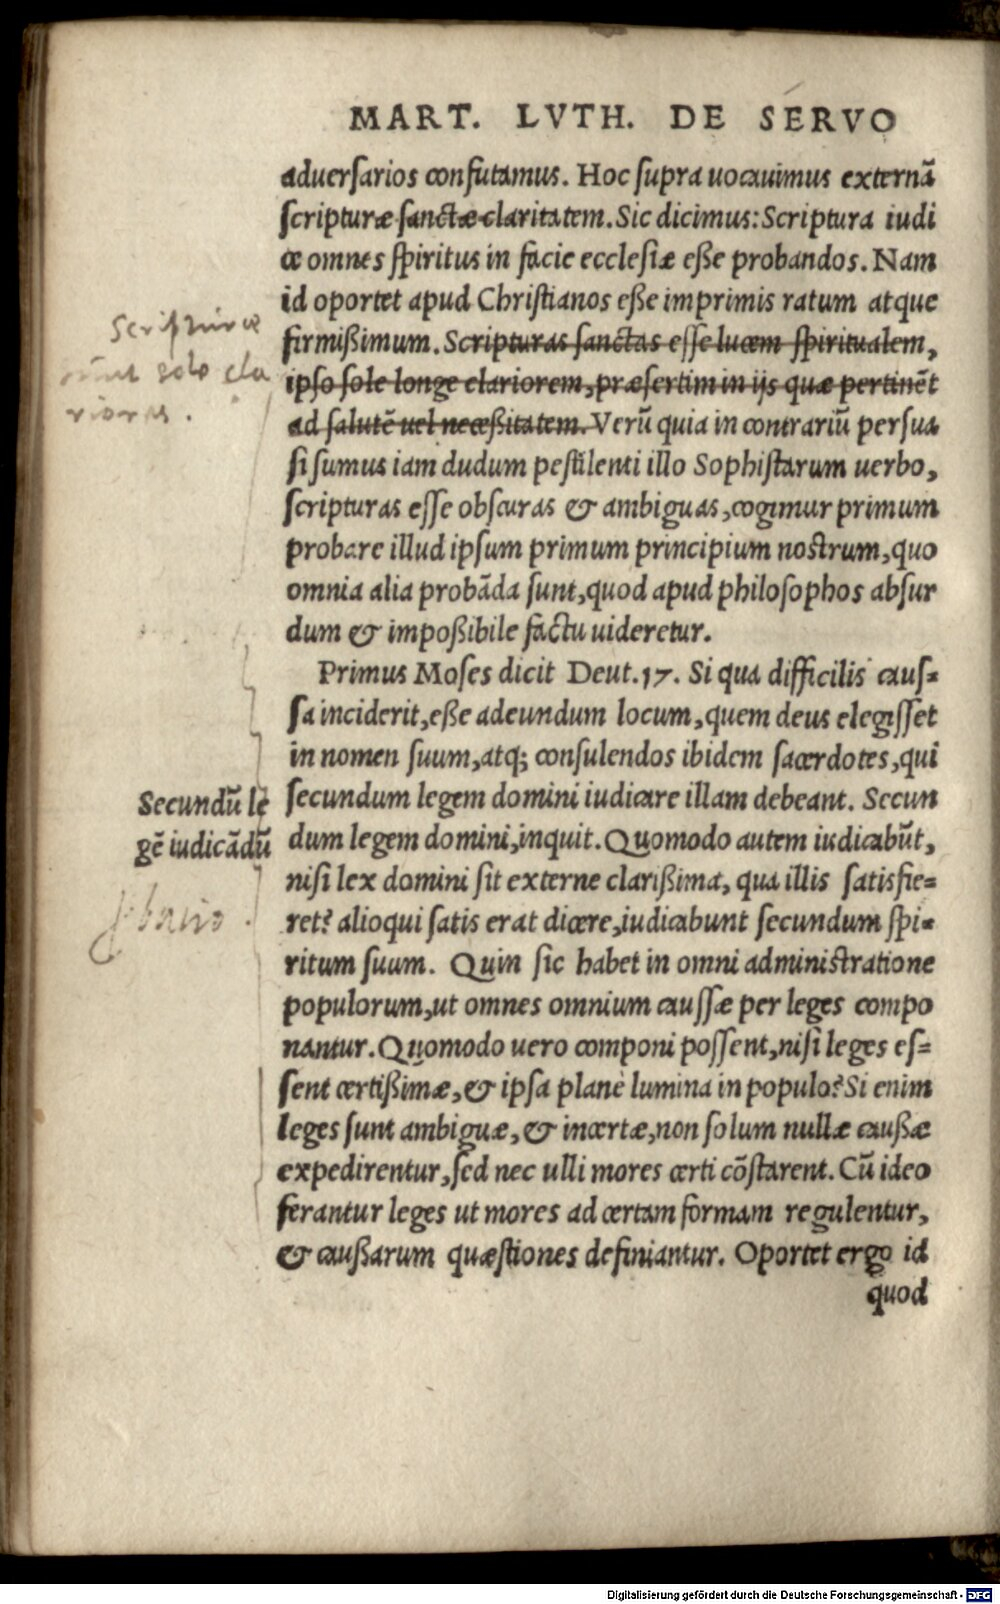 MART. LVTH. DE SERVO
aduersarios confutamus. Hoc supra uocauimus externā
scripturæ sanctæ claritatem. Sic dicimus: Scriptura iudi
ce omnes spiritus in facie ecclesiæ eße probandos. Nam
id oportet apud Christianos eße imprimis ratum atque
firmißimum. Scripturas sanctas esse lucem spiritualem,
ipso sole longe clariorem, præsertim in ijs quæ pertinēt
ad salutē uel neceßitatem. Verū quia in contrariū persua
si sumus iam dudum pestilenti illo Sophistarum uerbo,
scripturas esse obscuras & ambiguas, cogimur primum
probare illud ipsum primum principium nostrum, quo
omnia alia probāda sunt, quod apud philosophos absur
dum & impoßibile factu uideretur.
Primus Moses dicit Deut. 17. Si qua difficilis caus=
sa inciderit, eße adeundum locum, quem deus elegisset
in nomen suum, atq; consulendos ibidem sacerdotes, qui
secundum legem domini iudicare illam debeant. Secun
dum legem domini, inquit. Quomodo autem iudicabūt,
nisi lex domini sit externe clarißima, qua illis satisfie=
ret? alioqui satis erat dicere, iudicabunt secundum spi=
ritum suum. Quin sic habet in omni administratione
populorum, ut omnes omnium caussæ per leges compo
nantur. Quomodo uero componi possent, nisi leges es=
sent certißimæ, & ipsa planè lumina in populo? Si enim
leges sunt ambiguæ, & incertæ, non solum nullæ caußæ
expedirentur, sed nec ulli mores certi cōstarent. Cū ideo
ferantur leges ut mores ad certam formam regulentur,
& caußarum quæstiones definiantur. Oportet ergo id
quod
Scripturæ
sunt sole cla
riores.
Secundū le
gē iudicādū
Digitalisierung gefördert durch die Deutsche Forschungsgemeinschaft - DFG